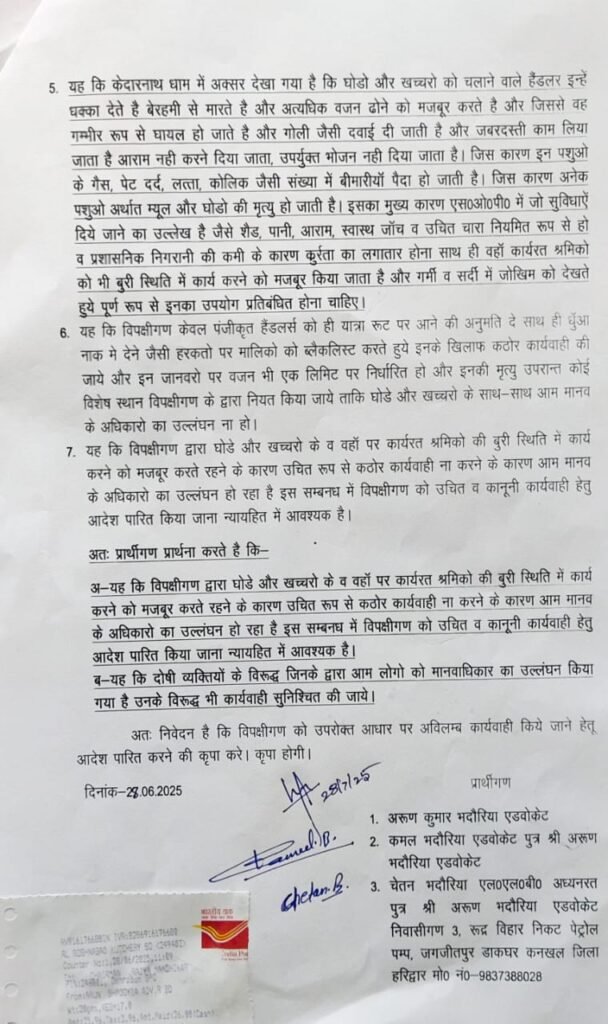 5. यह कि केदारनाथ धाम में अक्सर देखा गया है कि घोडो और खच्चरो को चलाने वाले हैंडलर इन्हें
धक्का देते है बेरहमी से मारते है और अत्यधिक वजन ढोने को मजबूर करते है और जिससे वह
गम्भीर रूप से घायल हो जाते है और गोली जैसी दवाई दी जाती है और जबरदस्ती काम लिया
जाता है आराम नही करने दिया जाता, उपर्युक्त भोजन नही दिया जाता है। जिस कारण इन पशुओ
के गैस, पेट दर्द, लत्ता, कोलिक जैसी संख्या में बीमारीयाँ पैदा हो जाती है। जिस कारण अनेक
पशुओ अर्थात म्यूल और घोडो की मृत्यु हो जाती है। इसका मुख्य कारण एस०ओ०पी० में जो सुविधाऐं
दिये जाने का उल्लेख है जैसे शैड, पानी, आराम, स्वास्थ जाँच व उचित चारा नियमित रूप से हो
व प्रशासनिक निगरानी की कमी के कारण कुर्रता का लगातार होना साथ ही वहाँ कार्यरत श्रमिको
को भी बुरी स्थिति में कार्य करने को मजबूर किया जाता है और गर्मी व सर्दी में जोखिम को देखते
हुये पूर्ण रूप से इनका उपयोग प्रतिबंधित होना चाहिए।
6. यह कि विपक्षीगण केवल पंजीकृत हैंडलर्स को ही यात्रा रूट पर आने की अनुमति दे साथ ही धुँआ
नाक मे देने जैसी हरकतो पर मालिको को ब्लैकलिस्ट करते हुये इनके खिलाफ कठोर कार्यवाही की
जाये और इन जानवरो पर वजन भी एक लिमिट पर निर्धारित हो और इनकी मृत्यु उपरान्त कोई
विशेष स्थान विपक्षीगण के द्वारा नियत किया जाये ताकि घोडे और खच्चरो के साथ-साथ आम मानव
के अधिकारो का उल्लंघन ना हो।
7. यह कि विपक्षीगण द्वारा घोडे और खच्चरो के व वहाँ पर कार्यरत श्रमिको की बुरी स्थिति में कार्य
करने को मजबूर करते रहने के कारण उचित रूप से कठोर कार्यवाही ना करने के कारण आम मानव
के अधिकारो का उल्लंघन हो रहा है इस सम्बनध में विपक्षीगण को उचित व कानूनी कार्यवाही हेतु
आदेश पारित किया जाना न्यायहित में आवश्यक है।
अतः प्रार्थीगण प्रार्थना करते है कि–
अ–यह कि विपक्षीगण द्वारा घोडे और खच्चरो के व वहाँ पर कार्यरत श्रमिको की बुरी स्थिति में कार्य
करने को मजबूर करते रहने के कारण उचित रूप से कठोर कार्यवाही ना करने के कारण आम मानव
के अधिकारो का उल्लंघन हो रहा है इस सम्बनध में विपक्षीगण को उचित व कानूनी कार्यवाही हेतु
आदेश पारित किया जाना न्यायहित में आवश्यक है।
ब–यह कि दोषी व्यक्तियों के विरूद्ध जिनके द्वारा आम लोगो को मानवाधिकार का उल्लंघन किया
गया है उनके विरूद्ध भी कार्यवाही सुनिश्चित की जाये।
अतः निवेदन है कि विपक्षीगण को उपरोक्त आधार पर अविलम्ब कार्यवाही किये जाने हेतू
आदेश पारित करने की कृपा करे। कृपा होगी।
दिनांक–28.06.2025
28/7/25
Chetan.B.
प्रार्थीगण
1. अरूण कुमार भदौरिया एडवोकेट
2. कमल भदौरिया एडवोकेट पुत्र श्री अरूण
भदौरिया एडवोकेट
3. चेतन भदौरिया एल०एल०बी० अध्यनरत
पुत्र श्री अरूण भदौरिया एडवोकेट
निवासीगण 3, रूद्र विहार निकट पेट्रोल
पम्प, जगजीतपुर डाकघर कनखल जिला
हरिद्वार मो० नं०–9837388028
भारतीय डाक